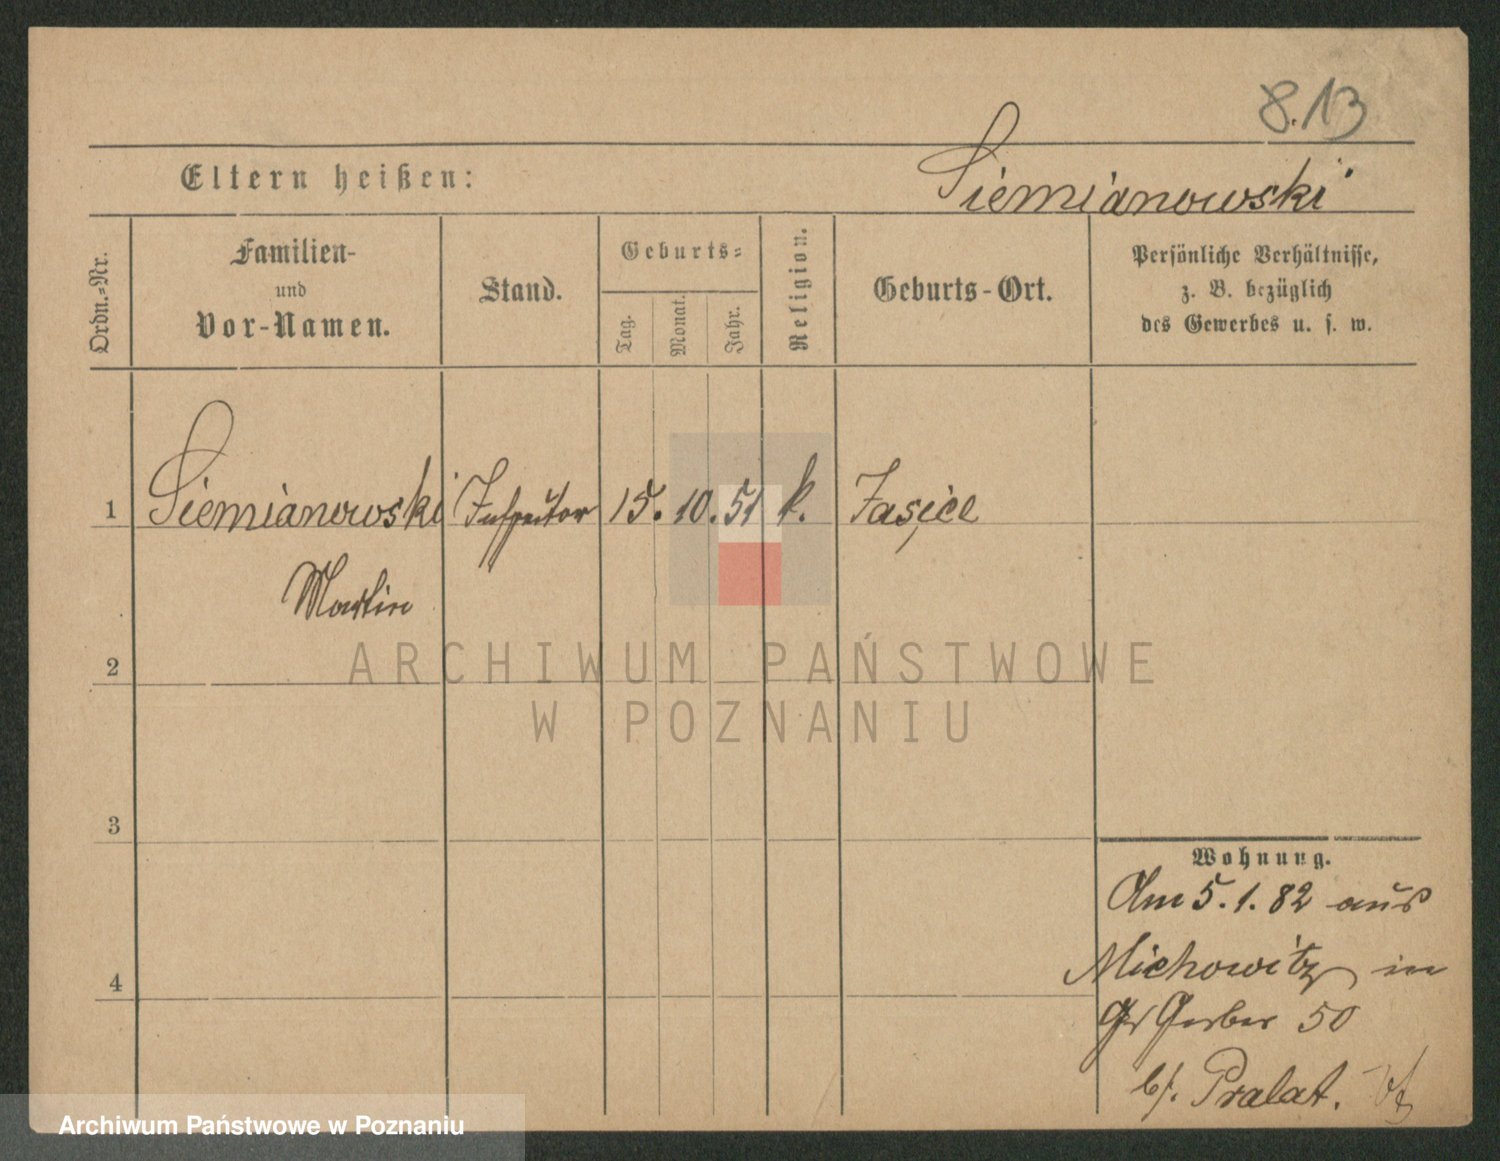 8.13
Eltern heißen:
Siemianowski
Ordn.=Nr.
Familien-
und
Vor-Namen.
Stand.
Geburts=
Tag.
Monat.
Jahr.
Religion.
Geburts-Ort.
Persönliche Verhältnisse,
z. B. bezüglich
des Gewerbes u. s. w.
1 Siemianowski Inspektor 15. 10. 51 k.
Martin
2
ARCHIWUM PAŃSTWOWE
W POZNANIU
3
Wohnung.
Am 5.1.82 aus
Michowitz in
Gr Gerber 50
4
b/. Pralat.
Archiwum Państwowe w Poznaniu